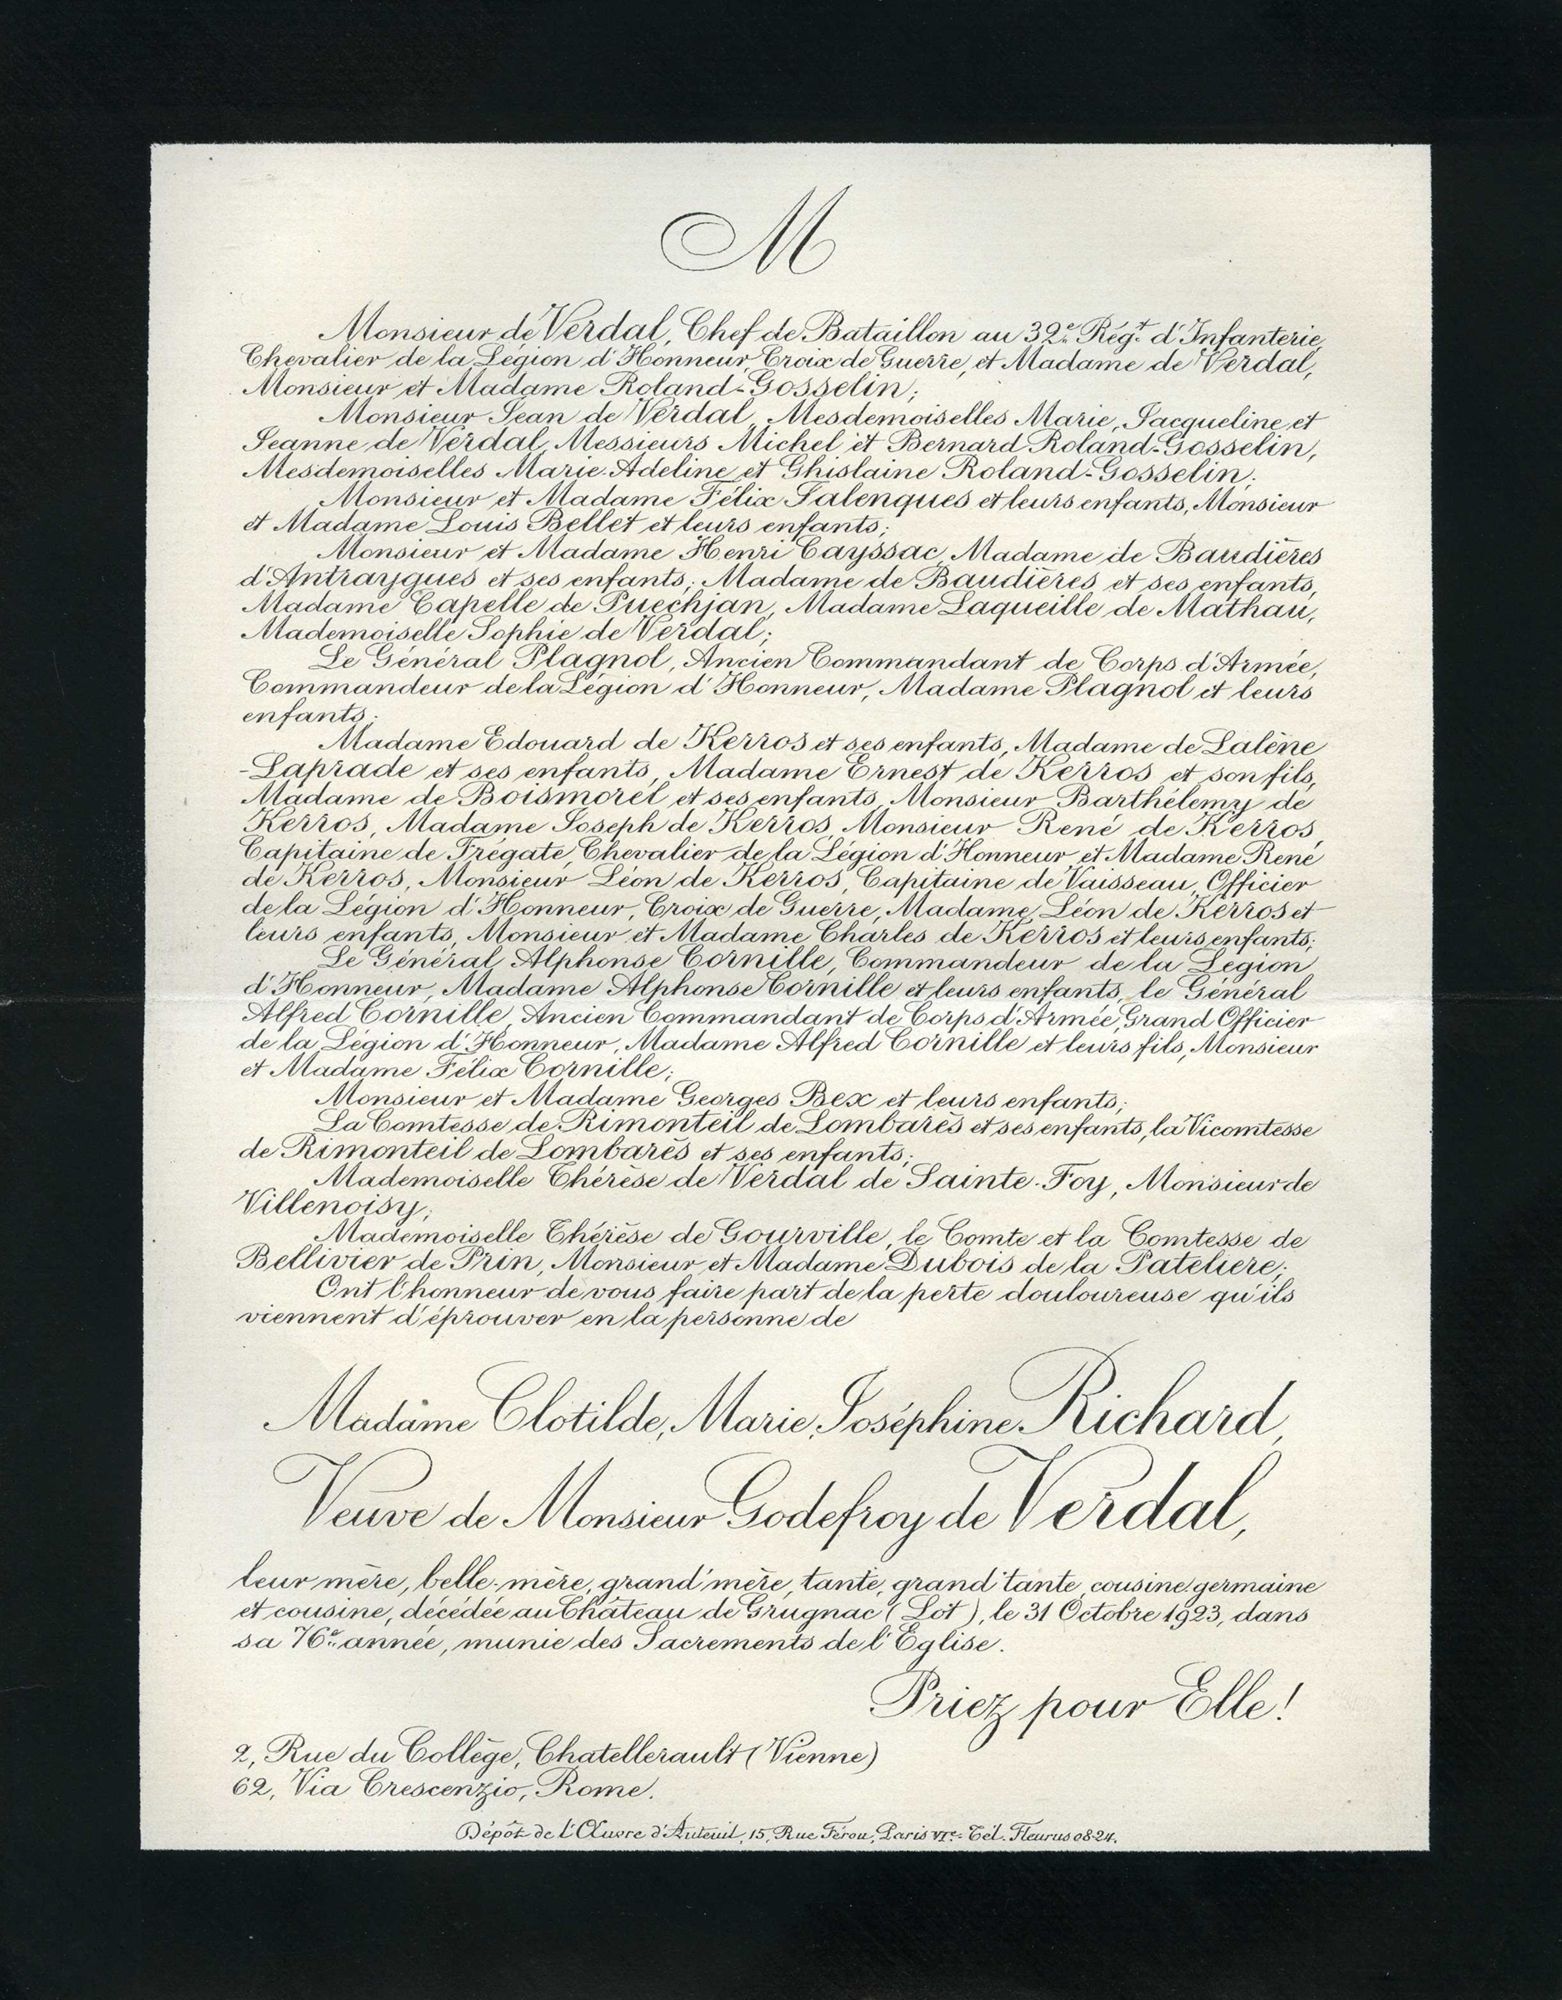 M
Monsieur de Verdal, Chef de Bataillon au 32e Régt d'Infanterie,
Chevalier de la Légion d'Honneur, Croix de Guerre, et Madame de Verdal,
Monsieur et Madame Roland-Gosselin;
Monsieur Jean de Verdal, Mesdemoiselles Marie, Jacqueline et
Jeanne de Verdal, Messieurs Michel et Bernard Roland-Gosselin,
Mesdemoiselles Marie-Adeline et Ghislaine Roland-Gosselin;
Monsieur et Madame Félix Talenques et leurs enfants, Monsieur
et Madame Louis Bellet et leurs enfants;
Monsieur et Madame Henri Cayssac, Madame de Baudières
d'Antraygues et ses enfants; Madame de Baudières et ses enfants,
Madame Capelle de Puechjan, Madame Laqueille de Mathau,
Mademoiselle Sophie de Verdal;
Le Général Plagnol, Ancien Commandant de Corps d'Armée,
Commandeur de la Légion d'Honneur, Madame Plagnol et leurs
enfants;
Madame Edouard de Kerros et ses enfants, Madame de Lalène
-Laprade et ses enfants, Madame Ernest de Kerros et son fils,
Madame de Boismorel et ses enfants, Monsieur Barthélemy de
Kerros, Madame Joseph de Kerros, Monsieur René de Kerros,
Capitaine de Frégate, Chevalier de la Légion d'Honneur et Madame René
de Kerros, Monsieur Léon de Kerros, Capitaine de Vaisseau, Officier
de la Légion d'Honneur, Croix de Guerre, Madame Léon de Kerros et
leurs enfants, Monsieur et Madame Charles de Kerros et leurs enfants;
Le Général Alphonse Cornille, Commandeur de la Légion
d'Honneur, Madame Alphonse Cornille et leurs enfants, le Général
Alfred Cornille, Ancien Commandant de Corps d'Armée, Grand Officier
de la Légion d'Honneur, Madame Alfred Cornille et leurs fils, Monsieur
et Madame Félix Cornille;
Monsieur et Madame Georges Bex et leurs enfants;
La Comtesse de Rimonteil de Lombarès et ses enfants, la Vicomtesse
de Rimonteil de Lombarès et ses enfants;
Mademoiselle Thérèse de Verdal de Sainte-Foy, Monsieur de
Villenoisy;
Mademoiselle Thérèse de Gourville, le Comte et la Comtesse de
Bellivier de Prin, Monsieur et Madame Dubois de la Patelière;
Ont l'honneur de vous faire part de la perte douloureuse qu'ils
viennent d'éprouver en la personne de
Madame Clotilde, Marie, Joséphine Richard,
Veuve de Monsieur Godefroy de Verdal,
leur mère, belle-mère, grand'mère, tante, grand'tante, cousine germaine
et cousine, décédée au Château de Grugnac (Lot), le 31 Octobre 1923, dans
sa 76e année, munie des Sacrements de l'Eglise.
Priez pour Elle!
2, Rue du Collège, Chatellerault (Vienne)
62, Via Crescenzio, Rome.
Dépôt de l'Œuvre d'Auteuil, 15, Rue Férou, Paris VIe - Tél. Fleurus 08-24.